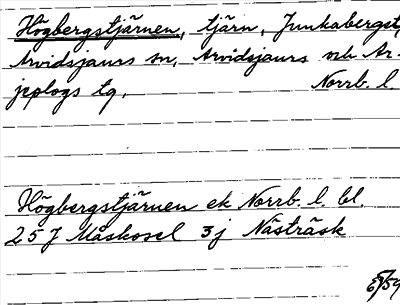 Högbergstjärnen, tjärn, Junkabergst,
Arvidsjaurs sn, Arvidsjaurs och Ar-
jeplogs tg, Norrb. l.
Högbergstjärnen ek Norrb. l. bl.
25 J Måskosel 3 j Nästräsk